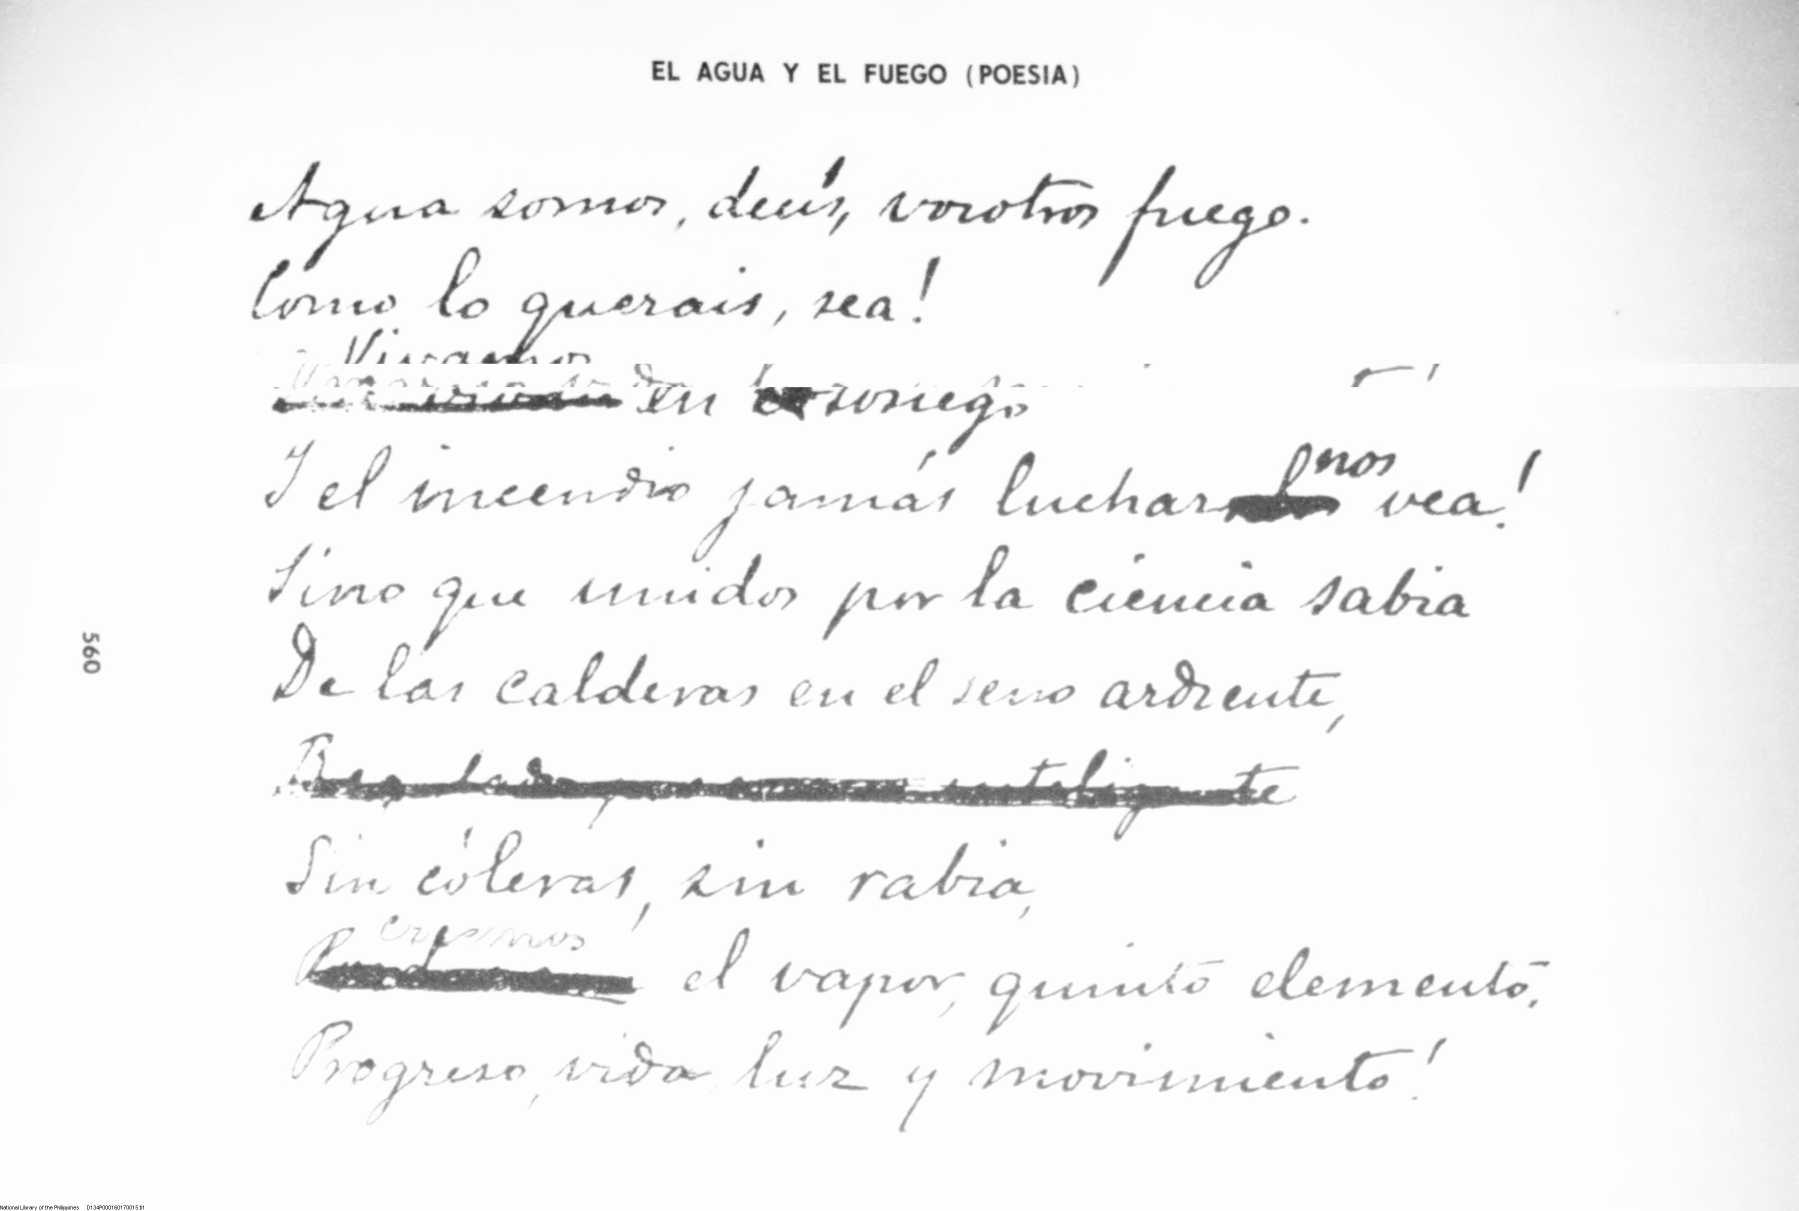 EL AGUA Y EL FUEGO (POESIA)
Agua somos, decís, vosotros fuego.
Como lo querais, sea!
Vivamos
en sosiego
Y el incendio jamás luchar nos vea!
Sino que unidos por la ciencia sabia
De las calderas en el seno ardiente,
inteligente
Sin cóleras, sin rabia,
creemos
el vapor, quinto elemento,
Progreso, vida luz y movimiento!
560
National Library of the Philippines